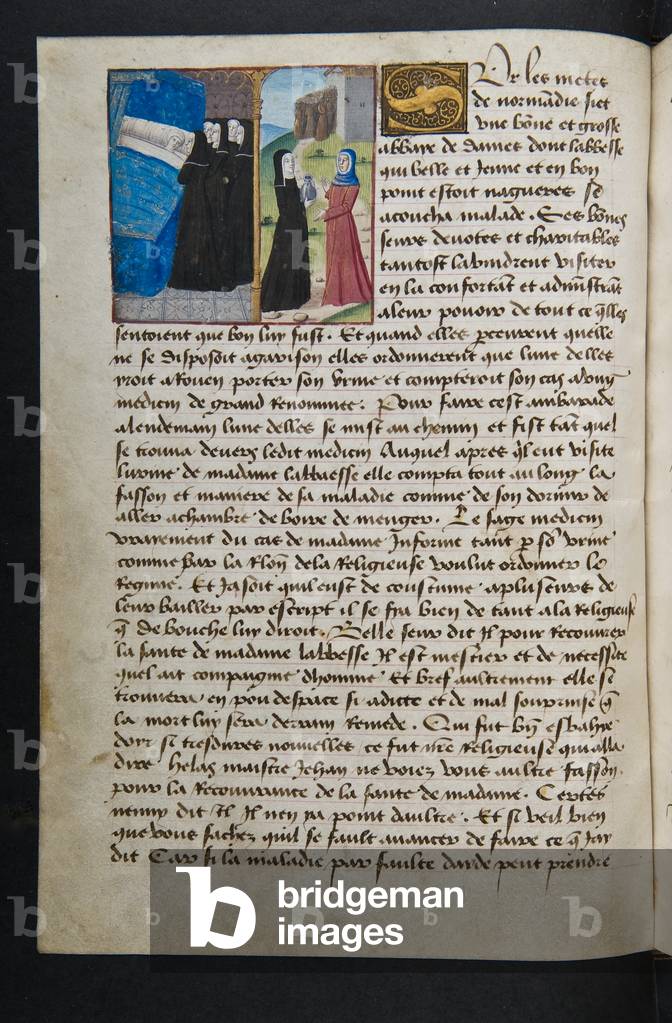 Sur les metes
de normādie siet
vne bōne et grosse
abbaye de dames dont labbesse
qui belle et Jenne et en bon
point estoit nagueres se
acoucha malade. Ses bōnes
seurs deuotes et charitables
tantost la vindrent visiter
en la confortāt et admīstrāt
a leur pouoir de tout ce q̄lles
sentoient que bon luy fust. Et quand elles perceurent quelle
ne se disposoit a garison elles ordonnerent que lune delles
yroit a Rouen porter son vrine et compteroit son cas a
medicin de grand Renommee. Pour faire cest ambaxade
a lendemain lune delles se mist au chemin et fist tāt quel
se trouua deuers ledit medicin Auquel apres q̄l eut visite
lurine de madame labbaesse elle compta tout au long la
fasson et maniere de sa maladie comme de son dormir de
aller a chambre de boire de menger. Le sage medicin
vrayement du cas de madame Informe tant p son vrine
comme par la Rlōn de la Religieuse voulut ordonner le
Regime. Et Jasoit quil eust de coustume a pluseurs de
leur bailler par escript il se fya bien de tant a la Religieuse
q̄ de bouche luy diroit. Belle seur dit Il pour Recouurer
la sante de madame labbesse Il est mestier et de necessite
quel ait compaignie dhomme Et bref aultrement elle se
trouuera en pou despace si adicte et de mal sourprinse q̄
la mort luy sera derrain Remede. Qui fut bn̄ esbahye
doir si tresdures nouuelles ce fut nr̄e Religieuse qui alla
dire helas maistre Jehan ne voiez vous aultre fasson
pour la Recouurance de la sante de madame. Certes
nenny dit Il Il nen ya point daultre. Et si veil bien
que vous sachez quil se fault auancer de faire ce q̄ Jay
dit Car si la maladie par faulte daide peut prendre
bridgeman
images